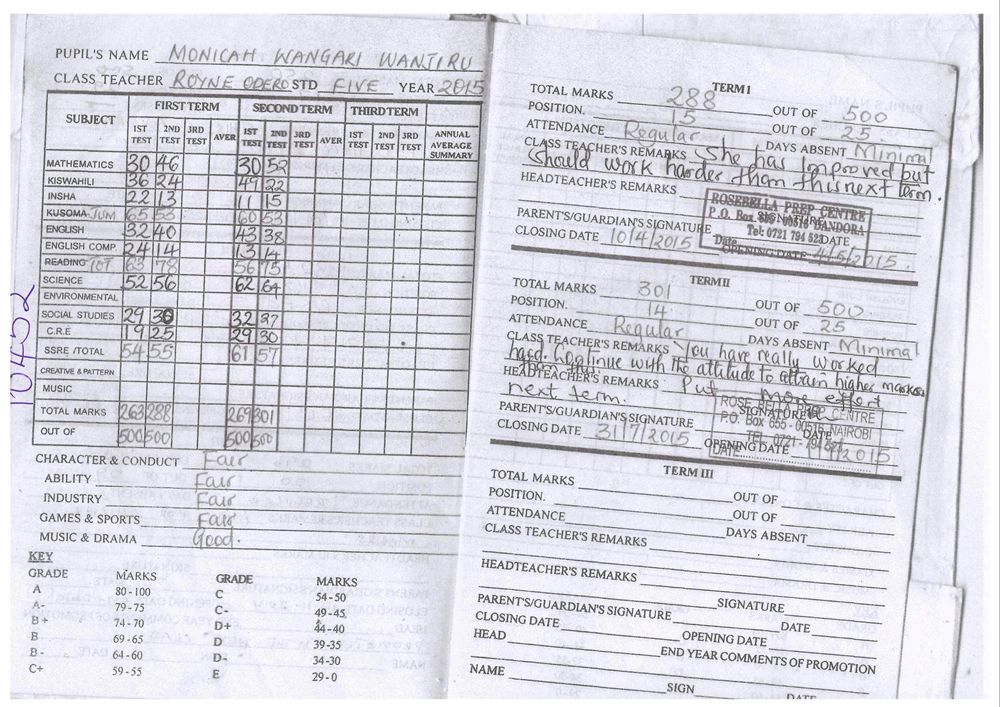 PUPIL'S NAME MONICAH WANGARI WANJIRU
CLASS TEACHER ROYNE ODERO STD FIVE YEAR 2015
SUBJECT FIRST TERM SECOND TERM THIRD TERM
1ST TEST 2ND TEST 3RD TEST AVER 1ST TEST 2ND TEST 3RD TEST AVER 1ST TEST 2ND TEST 3RD TEST ANNUAL AVERAGE SUMMARY
MATHEMATICS 30 46 30 52
KISWAHILI 36 24 49 22
INSHA 22 13 11 15
KUSOMA JUM 65 53 60 53
ENGLISH 32 40 43 38
ENGLISH COMP. 24 14 13 14
READING TOT 63 78 56 75
SCIENCE 52 56 62 64
ENVIRONMENTAL
SOCIAL STUDIES 29 30 32 27
C.R.E 19 25 29 30
SSRE /TOTAL 54 55 61 57
CREATIVE & PATTERN
MUSIC
TOTAL MARKS 263 288 269 301
OUT OF 500 500 500 500
10452
CHARACTER & CONDUCT Fair
ABILITY Fair
INDUSTRY Fair
GAMES & SPORTS Fair
MUSIC & DRAMA Good.
KEY
GRADE MARKS GRADE MARKS
A 80-100 C 54-50
A- 79-75 C- 49-45
B+ 74-70 D+ 44-40
B 69-65 D 39-35
B- 64-60 D- 34-30
C+ 59-55 E 29-0
TERM I
TOTAL MARKS 288 OUT OF 500
POSITION. 15 OUT OF 25
ATTENDANCE Regular DAYS ABSENT Minimal
CLASS TEACHER'S REMARKS She has improved but
should work harder than this next term.
HEADTEACHER'S REMARKS
ROSEBELLA PREP CENTRE
P.O. Box 655 - 00516 DANDORA
Tel: 0721 794 523
Date
PARENT'S/GUARDIAN'S SIGNATURE SIGNATURE DATE
CLOSING DATE 10/4/2015 OPENING DATE 4/5/2015.
TERM II
TOTAL MARKS 301 OUT OF 500
POSITION. 14 OUT OF 25
ATTENDANCE Regular DAYS ABSENT Minimal
CLASS TEACHER'S REMARKS You have really worked
hard. Continue with the attitude to attain higher marks
than this.
HEADTEACHER'S REMARKS Put more effort
next term.
ROSEBELLA PREP CENTRE
P.O. Box 655 - 00516, NAIROBI
TEL: 0721-794 523
DATE
SIGNATURE
PARENT'S/GUARDIAN'S SIGNATURE DATE
CLOSING DATE 31/7/2015 OPENING DATE 2015
TERM III
TOTAL MARKS OUT OF
POSITION. OUT OF
ATTENDANCE DAYS ABSENT
CLASS TEACHER'S REMARKS
HEADTEACHER'S REMARKS
SIGNATURE
PARENT'S/GUARDIAN'S SIGNATURE DATE
CLOSING DATE OPENING DATE
HEAD END YEAR COMMENTS OF PROMOTION
NAME SIGN DATE